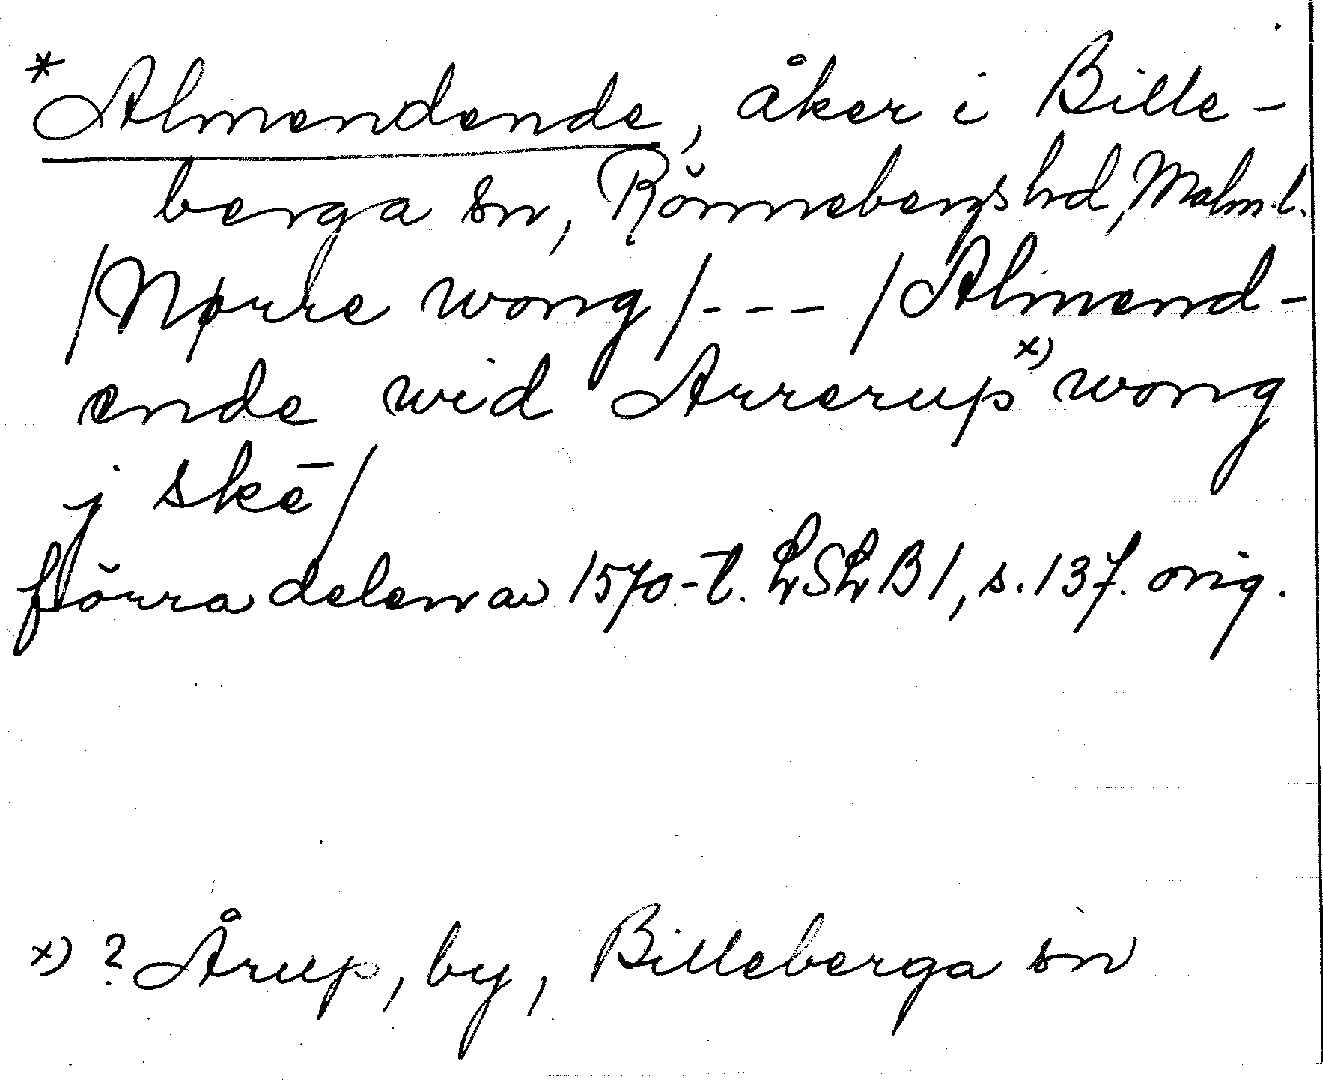 *Almendende, åker i Bille-
berga sn, Rönnebergs hd, Malm. l.
/Nørre wong/--- /Almend-
ende wid Arrerup x) wong
j skē/
förra delen av 1570-t. LSLB1, s. 137. orig.
x) ? Årup, by, Billeberga sn